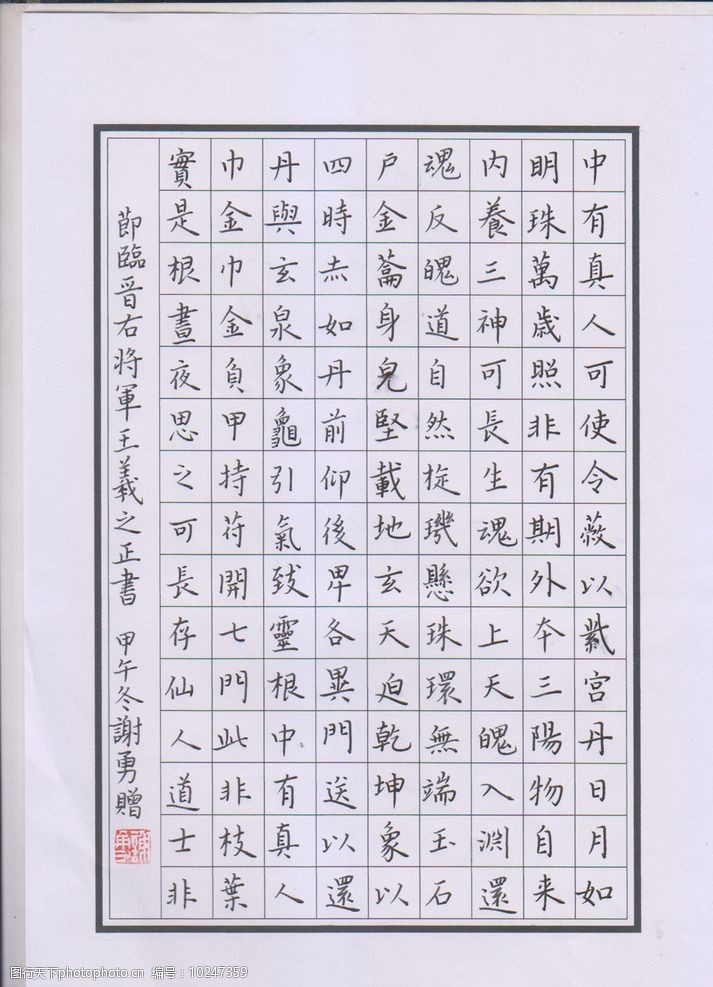 中有真人可使令薇以紫宮丹日月如
明珠萬歲照非有期外夲三陽物自来
内養三神可長生魂欲上天魄入淵還
魂反魄道自然㨁璣懸珠環無端玉石
戶金籥身皃堅載地玄天迫乾坤象以
四時赤如丹前仰後卑各異門送以還
丹與玄泉象龜引氣致靈根中有真人
巾金巾金負甲持苻開七門此非枝葉
實是根晝夜思之可長存仙人道士非
節臨晉右將軍王羲之正書 甲午冬謝勇贈
图行天下photophoto.cn 编号:10247359